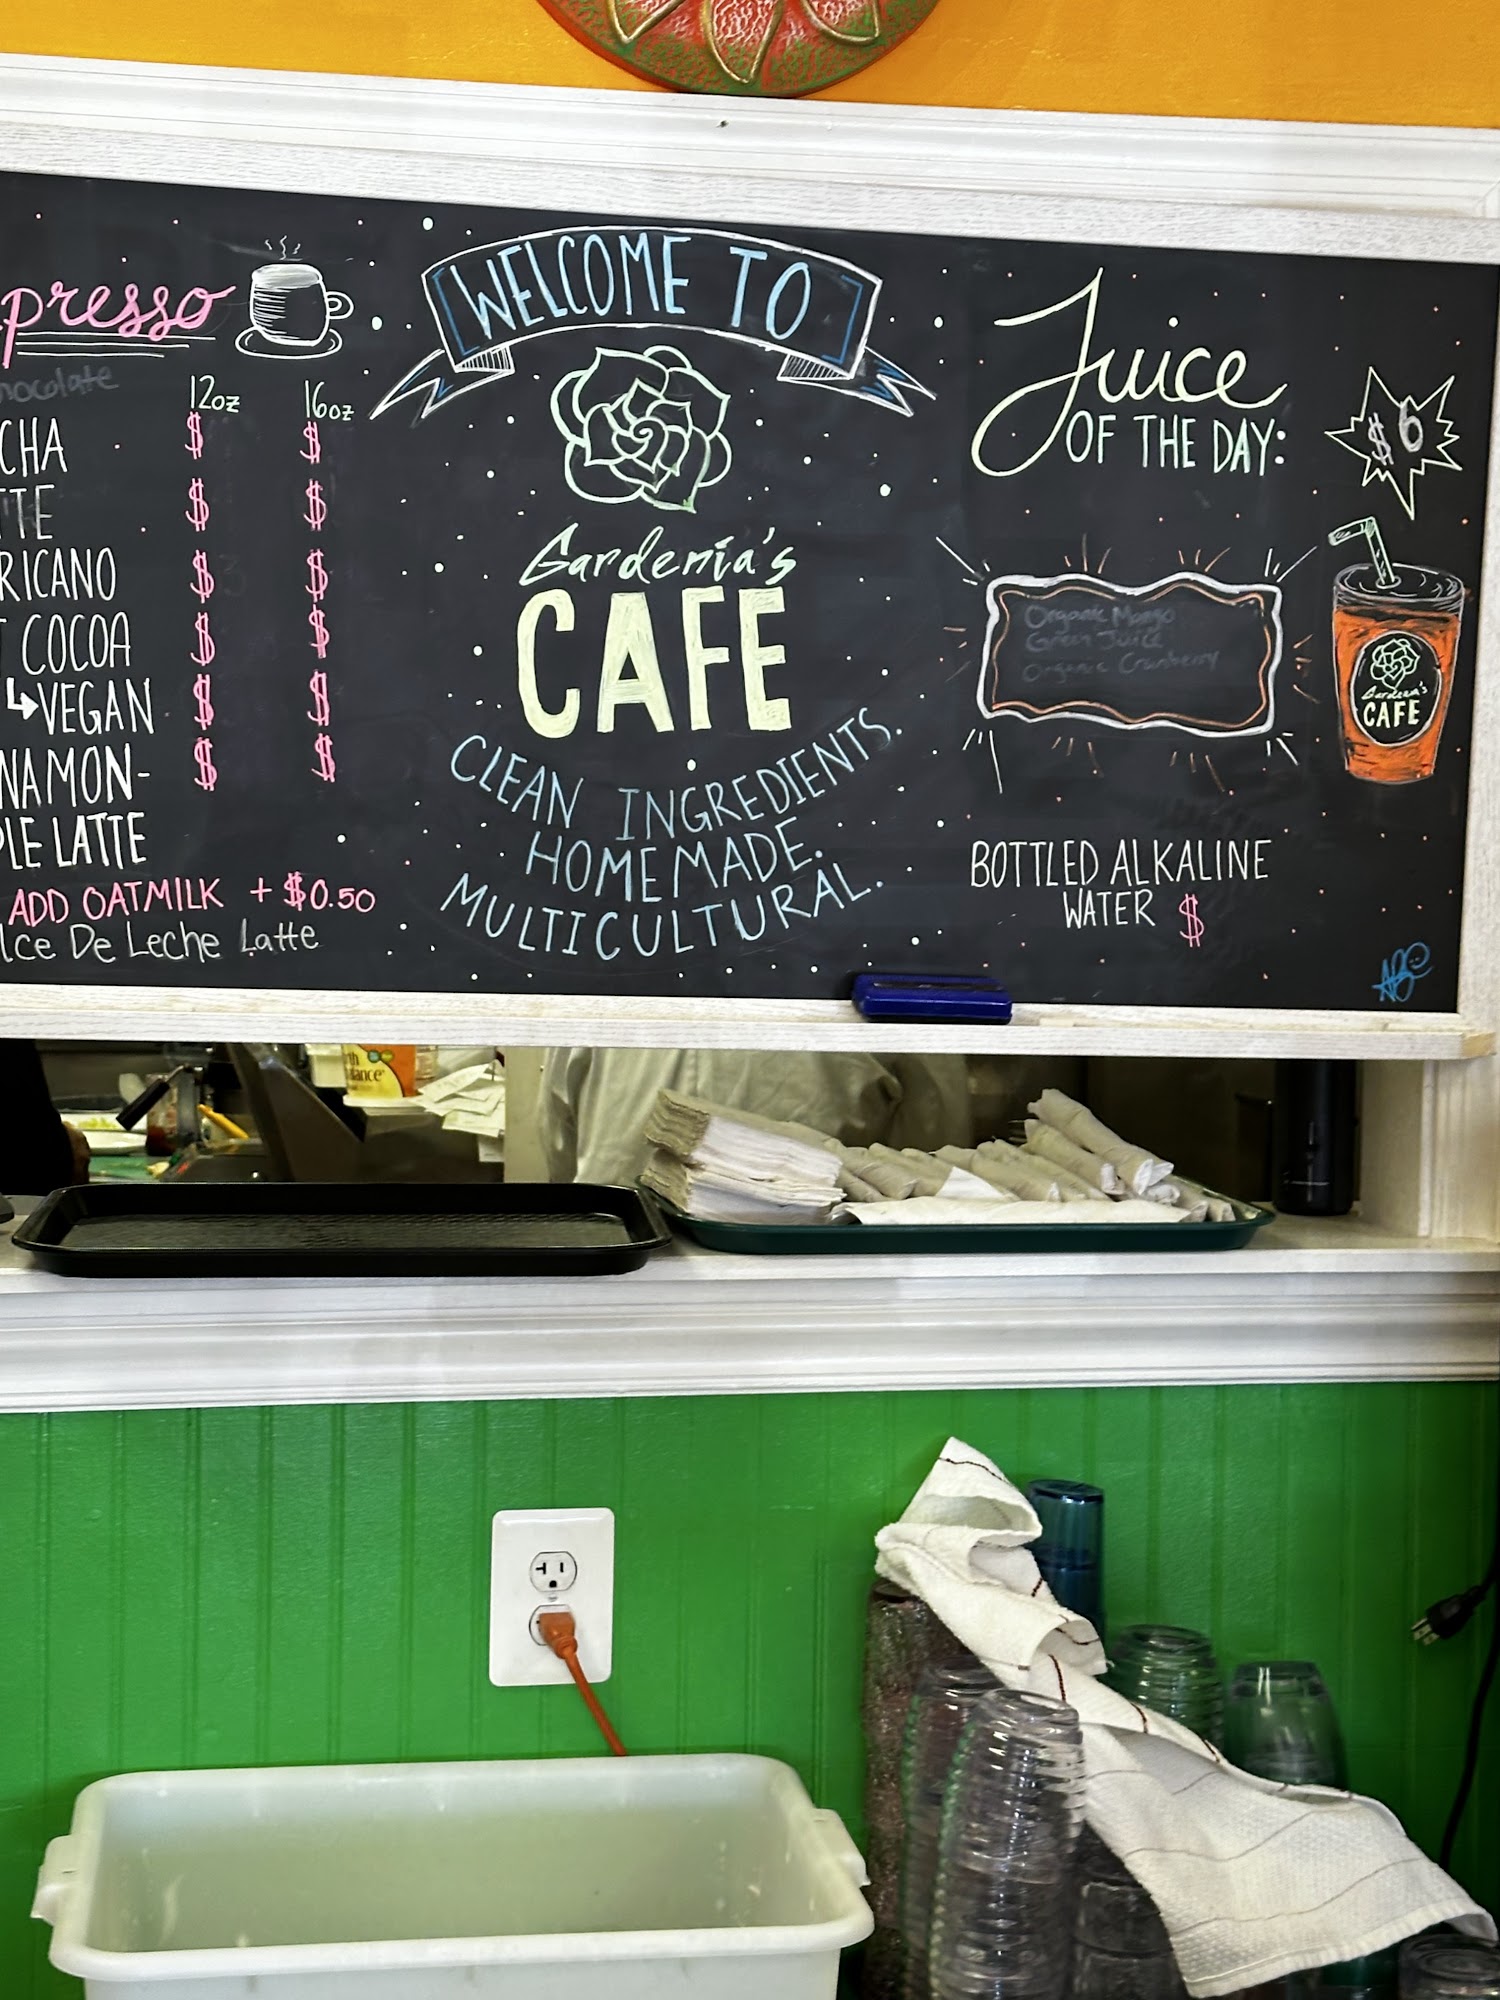 presso
hocolate
12oz 16oz
CHA $ $
TTE $ $
RICANO $ $
COCOA $ $
↳VEGAN $ $
NAMON- $ $
PLE LATTE
ADD OATMILK + $0.50
lce De Leche Latte
WELCOME TO
Gardenia's
CAFE
CLEAN INGREDIENTS.
HOMEMADE.
MULTICULTURAL.
Juice
OF THE DAY:
$6
Organic Mango
Green Juice
Organic Cranberry
Gardenia's
CAFE
BOTTLED ALKALINE
WATER $
ABC